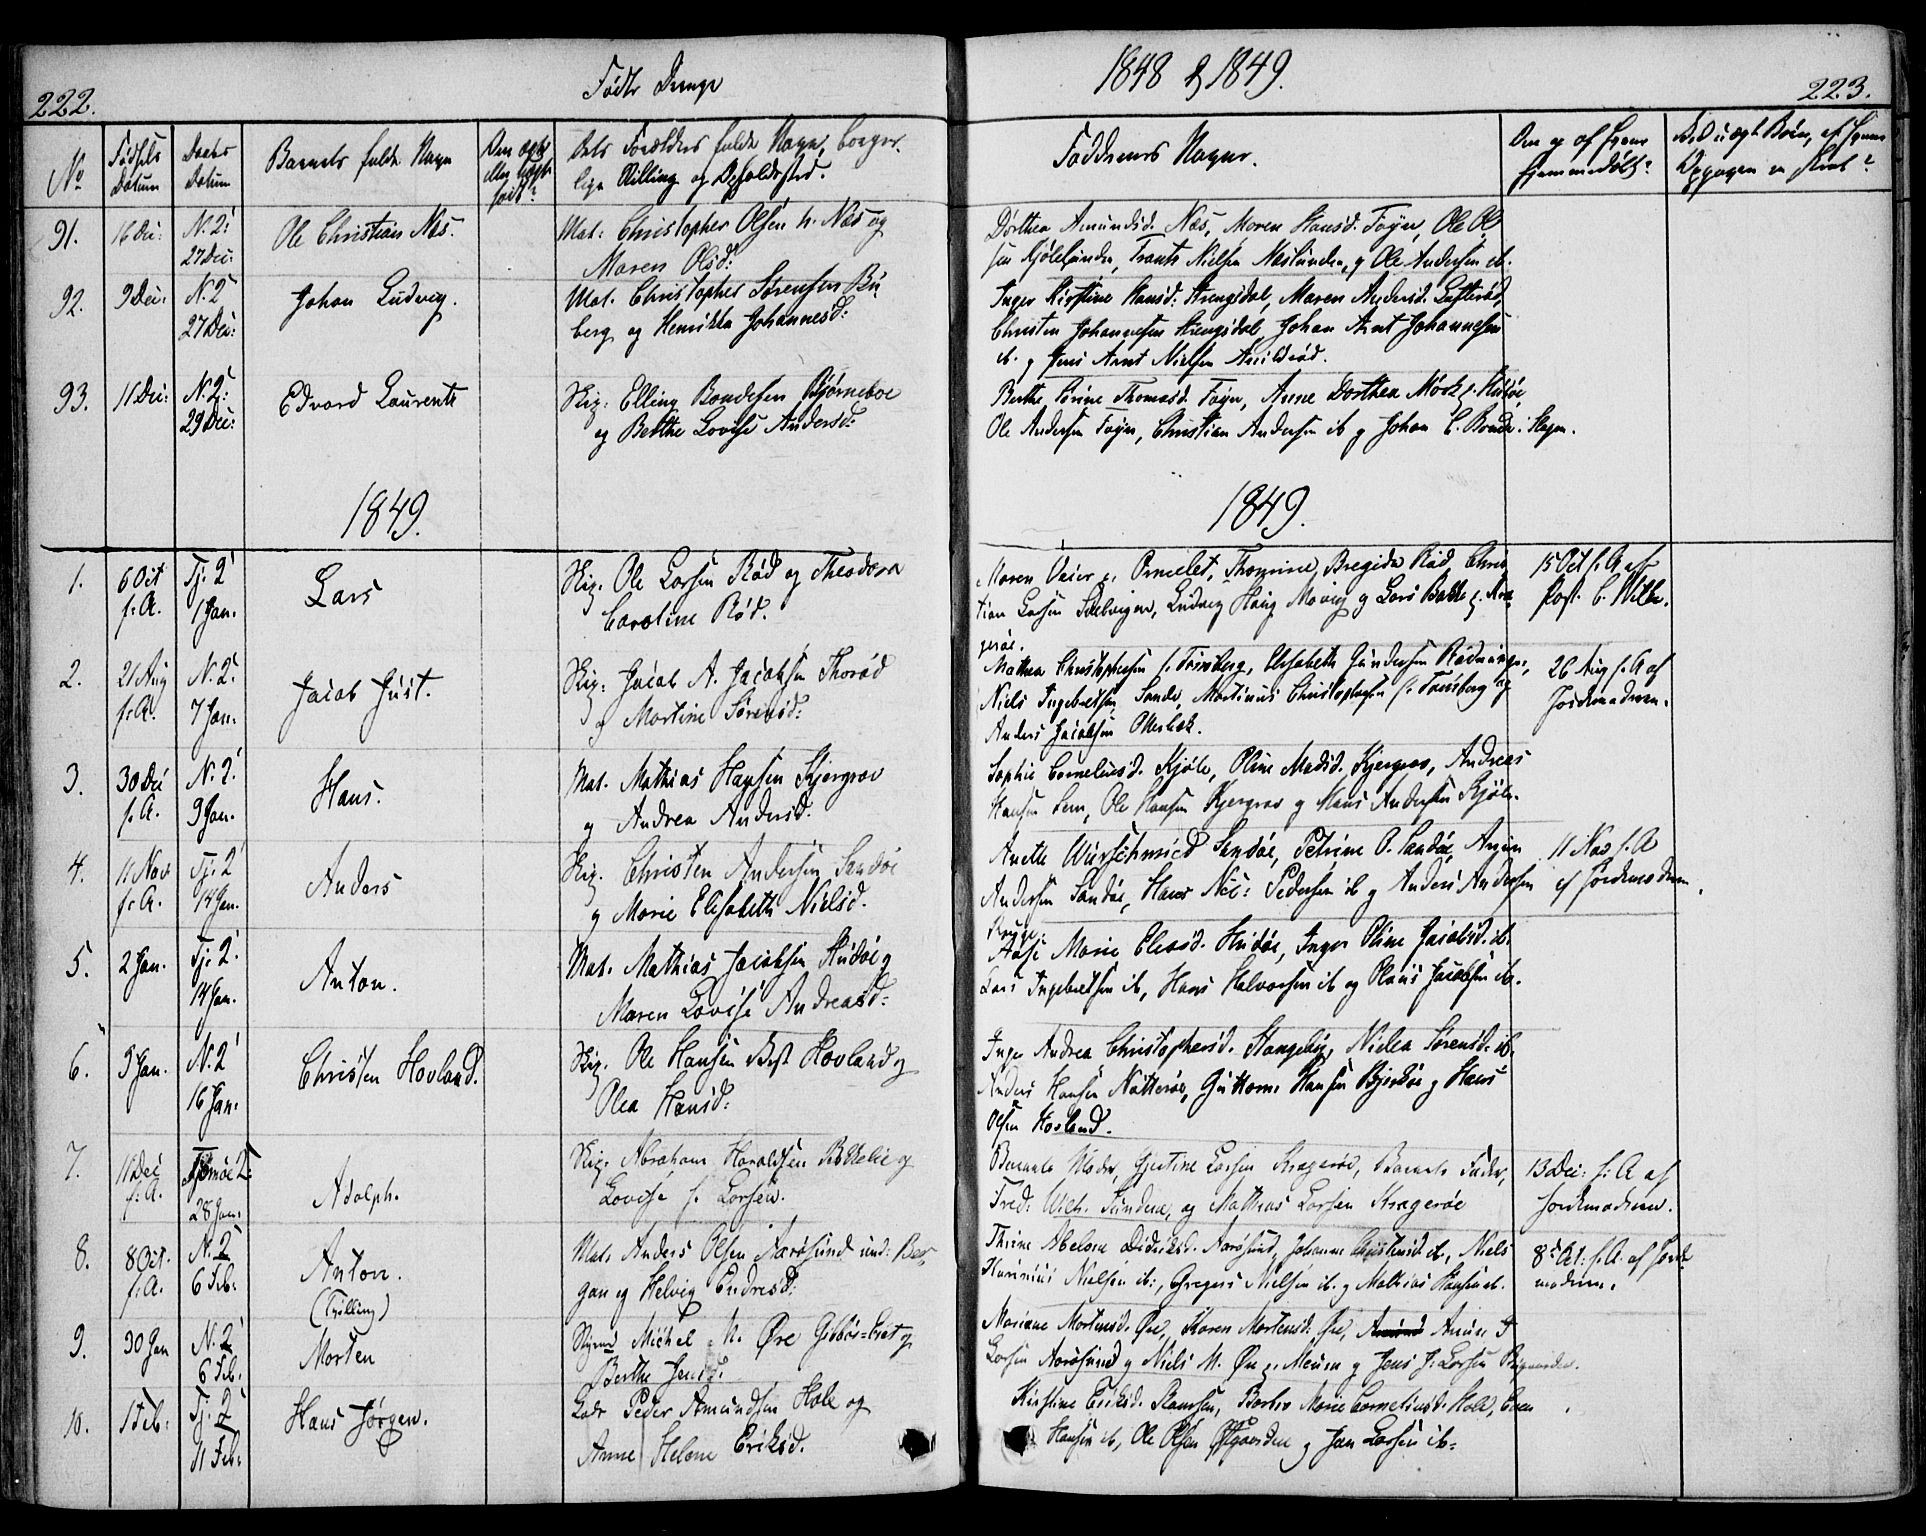 222.
Fødte Drenge
No
Fødsels Datum
Daabs Datum
Barnets fulde Navn
Den ægte eller uægte født?
Dets Forældres fulde Navn, borger-
lige Stilling og Opholdsted.
91.
16 Dec:
N. 2:
27 Dec:
Ole Christian Næs.
Mat: Christopher Olsen v. Næs og
Maren Olsd:
92.
9 Dec:
N. 2
27 Dec:
Johan Ludvig.
Mat. Christopher Sørensen Bu
berg og Henrikka Johannesd:
93.
11 Dec:
N. 2:
29 Dec:
Edvard Laurents
Skip: Elling Bondesen Bjørneboe
og Berthe Lovise Andersd:
1849.
1.
6 Oct
f. A.
Tj: 2
1 Jan.
Lars
Skip. Ole Larsen Rød og Theodora
Caroline Rød.
2.
21 Aug
f. A.
N. 2:
7 Jan.
Jacob Just.
Skip: Jacob A. Jacobsen Thorød
og Mortine Sørensd:
3.
30 Dec
f. A.
N. 2:
9 Jan.
Hans.
Mat. Mathias Hansen Kjergrav
og Andrea Andersd.
4.
11 Nov
f. A.
Tj: 2
14 Jan.
Anders
Skip. Christen Andersen Sandøe
og Marie Elisabeth Nielsd.
5.
2 Jan.
Tj: 2:
14 Jan.
Anton.
Mat. Mathias Jacobsen Hudøe og
Maren Lovise Andreasd:
6.
3 Jan.
N. 2
16 Jan.
Christen Hovland.
Skip. Ole Hansen Hovland og
Olea Hansd:
7.
11 Dec
f. A.
Tjømøe 2:
28 Jan.
Adolph.
Skip. Abraham Haraldsen Bokelie og
Lovise f. Larsen.
8.
8 Oct.
f. A.
N. 2
6 Feb:
Anton.
(Trilling)
Mat. Anders Olsen Aarøsund und: Ber-
gan og Helvig Endresd:
9.
30 Jan
N. 2
6 Feb.
Morten
Michel M. Øre og
Berthe Jensd.
10.
1 Feb:
Tj. 2
11 Feb:
Hans Jørgen.
Lods Peder Amundsen Hole og
Anne Helene Eriksd.
1848 & 1849.
223.
Faddrenes Navne.
Om og af hvem hjemmedøbt?
Ved uægte Børn, af hvem
Opgaven er skeet?
Dorthea Amundsd. Næs, Maren Hansd. Føyn, Ole Ol-
sen Kjølesundn, Frants Nielsen Næssundn, og Ole Andersen ib.
Inger Kirstine Hansd. Strengsdal, Maren Andersd. Lofterød,
Christen Johannesen Strengsdal, Johan Arnt Johannesen
ib. og Jens Arnt Nielsen
Berthe Sørine Thomasd. Føyn, Anne Dorthea Mørk
Ole Andersen Føyn, Christian Andersen ib og Johan C. Bonde: Hagen.
1849.
Maren Omelet, Thomine Bregida Rød, Chris
tian Larsen Solvigen, Ludvig Haug og Lars Bakke
gerøe.
15 Oct f. A af
Past. C. Wille.
Mathea Christophersen f. Tønsberg, Elisabeth Gundersen
Niels Ingebretsen Sande, Martinus Christophersen f. Tønsberg og
Anders Jacobsen Ekebek.
26 Aug f. A af
Jordemodren.
Sophie Corneliusd. Kjøle, Oline Madsd. Kjergrav, Andreas
Hansen Sem, Ole Hansen Kjergrav og Hans Andersen Kjøle.
Anette Würschmied Sandøe, Petrine O. Sandøe,
Andersen Sandøe, Hans Nic: Pedersen ib og Anders Andersen
11 Nov f. A
af Jordemodren.
Aase Marie Eliasd. Hudøe, Inger Oline Jacobsd. ib.
Lars Ingebretsen ib, Hans Halvorsen ib og Olaus Jacobsen ib.
Inger Andrea Christophersd. Stangeby, Nielea Sørensd. ib.
Anders Hansen Nøtterøe, Guttorm Hansen Bjerkøe og Hans
Olsen Hovland.
Barnets Moder, Gjertine Larsen Kragerøe, Barnets Fader,
Fred: Wilh. og Mathias Larsen Kragerøe
13 Dec: f. A af
Jordemodren.
Thrine Abelone Didriksd. Aarøsund, Johanne Christensd ib., Niels
Nielsen ib:, Gregers Nielsen ib. og Mathias Hansen ib.
8de Oct: f. A. af Jorde-
modren.
Mariane Mortensd. Øre, Karen Mortensd. Øre,
Larsen Aarøsund og Niels M. Øre og Jens J. Larsen
Kirstine Eriksd. Barbro Marie Corneliusd Hole, Even
Hansen ib, Ole Olsen Østgaarden og Jan Larsen ib.